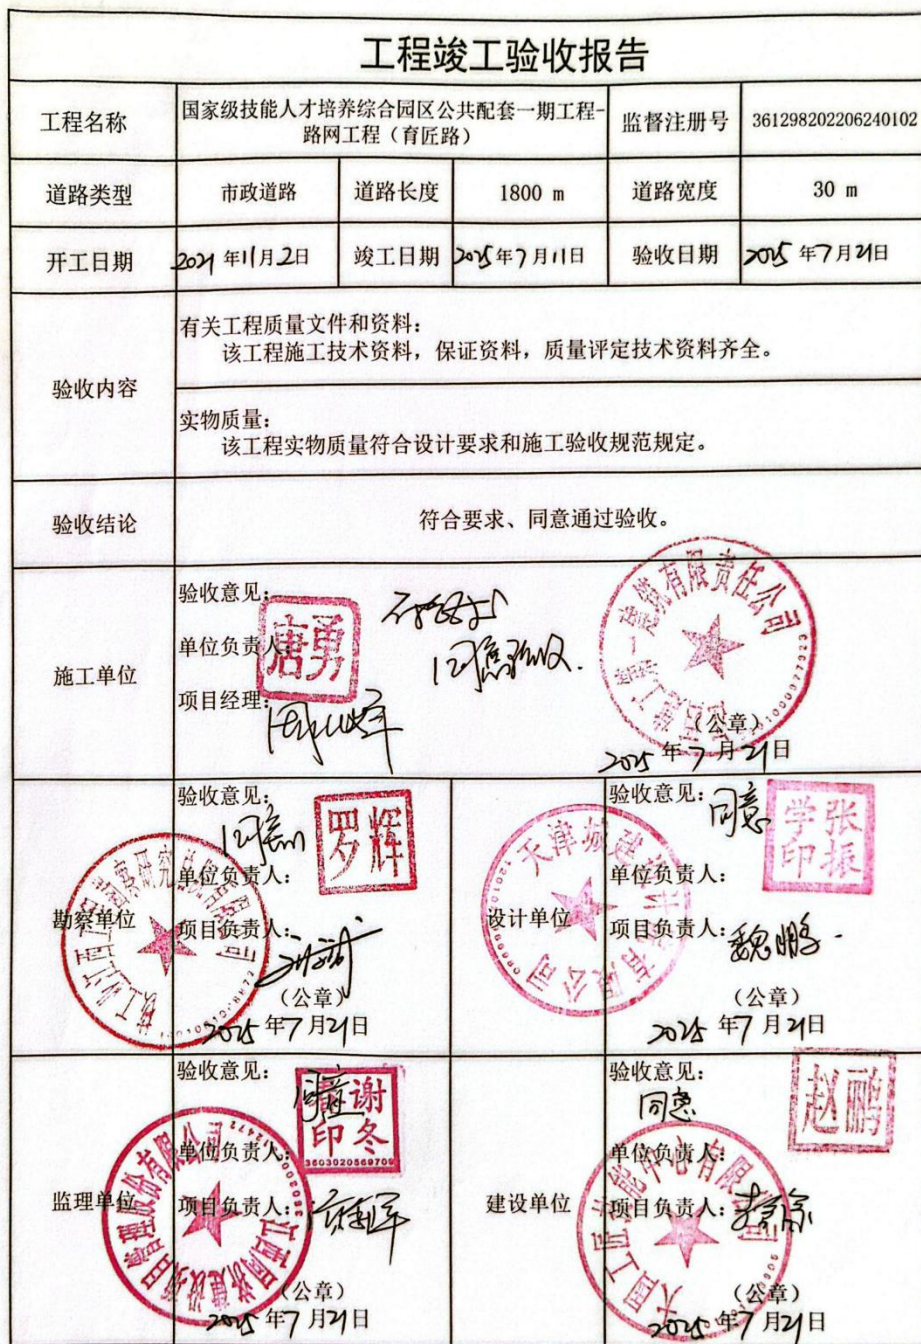 工程竣工验收报告
工程名称
国家级技能人才培养综合园区公共配套一期工程-
路网工程（育匠路）
监督注册号
361298202206240102
道路类型
市政道路
道路长度
1800 m
道路宽度
30 m
开工日期
2021年11月2日
竣工日期
2025年7月11日
验收日期
2025年7月21日
验收内容
有关工程质量文件和资料：
该工程施工技术资料，保证资料，质量评定技术资料齐全。
实物质量：
该工程实物质量符合设计要求和施工验收规范规定。
验收结论
符合要求、同意通过验收。
施工单位
验收意见：
同意验收.
单位负责人：
唐勇
项目经理：
（公章）
2025年7月21日
勘察单位
验收意见：
同意
单位负责人：
罗辉
项目负责人：
（公章）
2025年7月21日
设计单位
验收意见：
同意
单位负责人：
张振学印
项目负责人：
魏鹏
（公章）
2025年7月21日
天津城建设计院有限公司
监理单位
验收意见：
同意
单位负责人：
谢冬
印
3603020569709
项目负责人：
（公章）
2025年7月21日
建设单位
验收意见：
同意
单位负责人：
赵鹏
项目负责人：
（公章）
2025年7月21日